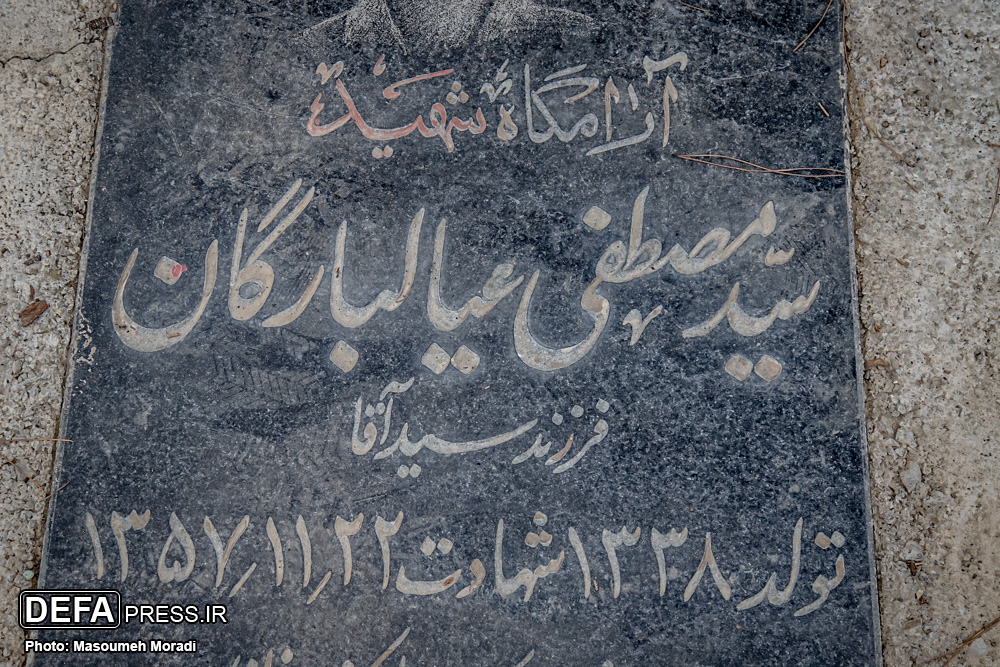 آرامگاه شهید
سید مصطفی عیالبارگان
فرزند سیدآقا
تولد ۱۳۳۸ شهادت ۲۲/۱۱/۱۳۵۷
DEFAPRESS.IR
Photo: Masoumeh Moradi